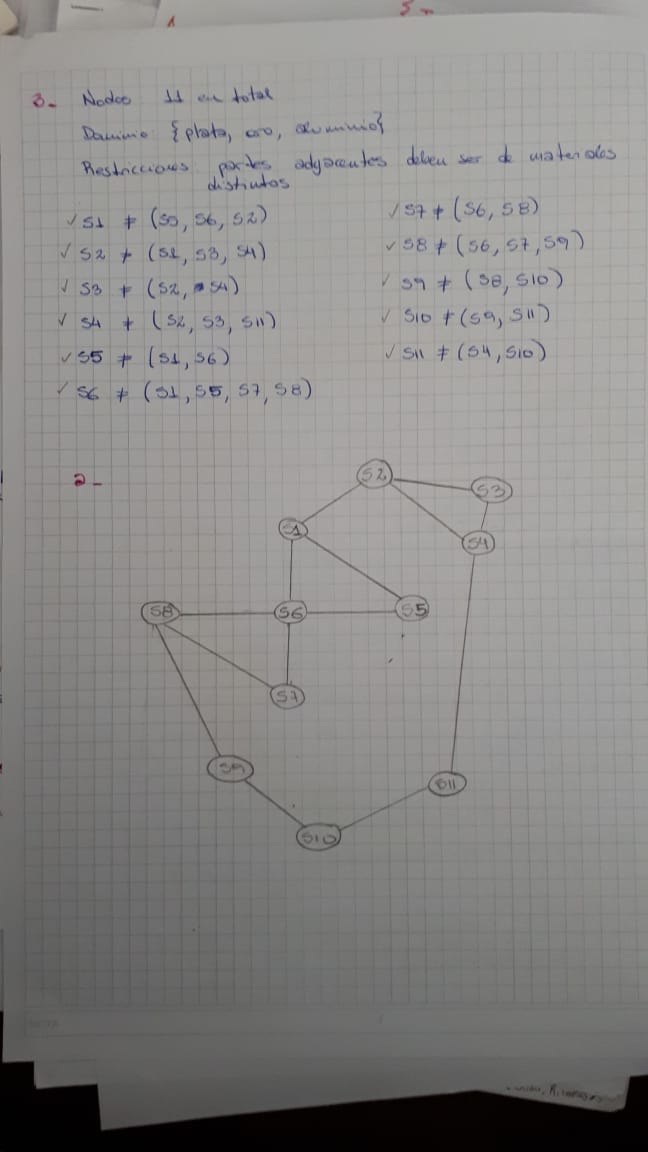 3- Nodos 11 en total
Dominio {plata, oro, aluminio}
Restricciones partes adyacentes deben ser de materiales
distintos
✓ S1 ≠ (S5, S6, S2)
✓ S2 ≠ (S1, S3, S4)
✓ S3 ≠ (S2, S4)
✓ S4 ≠ (S2, S3, S11)
✓ S5 ≠ (S1, S6)
✓ S6 ≠ (S1, S5, S7, S8)
✓ S7 ≠ (S6, S8)
✓ S8 ≠ (S6, S7, S9)
✓ S9 ≠ (S8, S10)
✓ S10 ≠ (S9, S11)
✓ S11 ≠ (S4, S10)
2-
S2
S3
S1
S4
S8
S6
S5
S7
S9
S11
S10